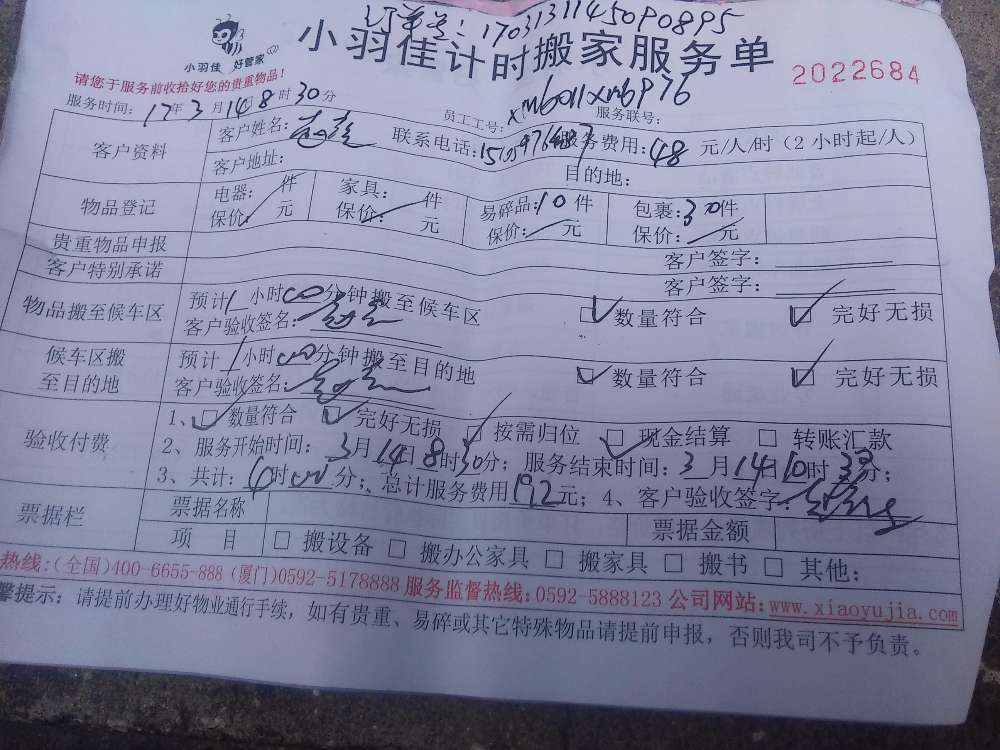 订单号:1703131145090895
小羽佳 好管家
小羽佳计时搬家服务单
2022684
请您于服务前收拾好您的贵重物品!
服务时间: 17年 3月 14 8时 30分 员工工号: xm6011xm6976 服务联号:
客户资料 客户姓名: 联系电话: 服务费用: 48 元/人/时(2小时起/人)
客户地址: 目的地:
物品登记 电器: 件 家具: 件 易碎品: 10件 包裹: 30件
保价: 元 保价: 元 保价: 元 保价: 元
贵重物品申报 客户签字:
客户特别承诺 客户签字:
物品搬至候车区 预计1小时00分钟搬至候车区 ☑ 数量符合 ☑ 完好无损
客户验收签名:
候车区搬至目的地 预计1小时00分钟搬至目的地 ☑ 数量符合 ☑ 完好无损
客户验收签名:
验收付费 1、☑数量符合 ☑完好无损 ☑按需归位 ☑现金结算 □转账汇款
2、服务开始时间: 3月14日8时30分; 服务结束时间: 3月14日10时30分;
3、共计: 4时00分; 总计服务费用192元; 4、客户验收签字:
票据栏 票据名称 票据金额
项目 □搬设备 □搬办公家具 □搬家具 □搬书 □其他:
热线:(全国)400-6655-888 (厦门)0592-5178888 服务监督热线:0592-5888123 公司网站:www.xiaoyujia.com
馨提示:请提前办理好物业通行手续,如有贵重、易碎或其它特殊物品请提前申报,否则我司不予负责。